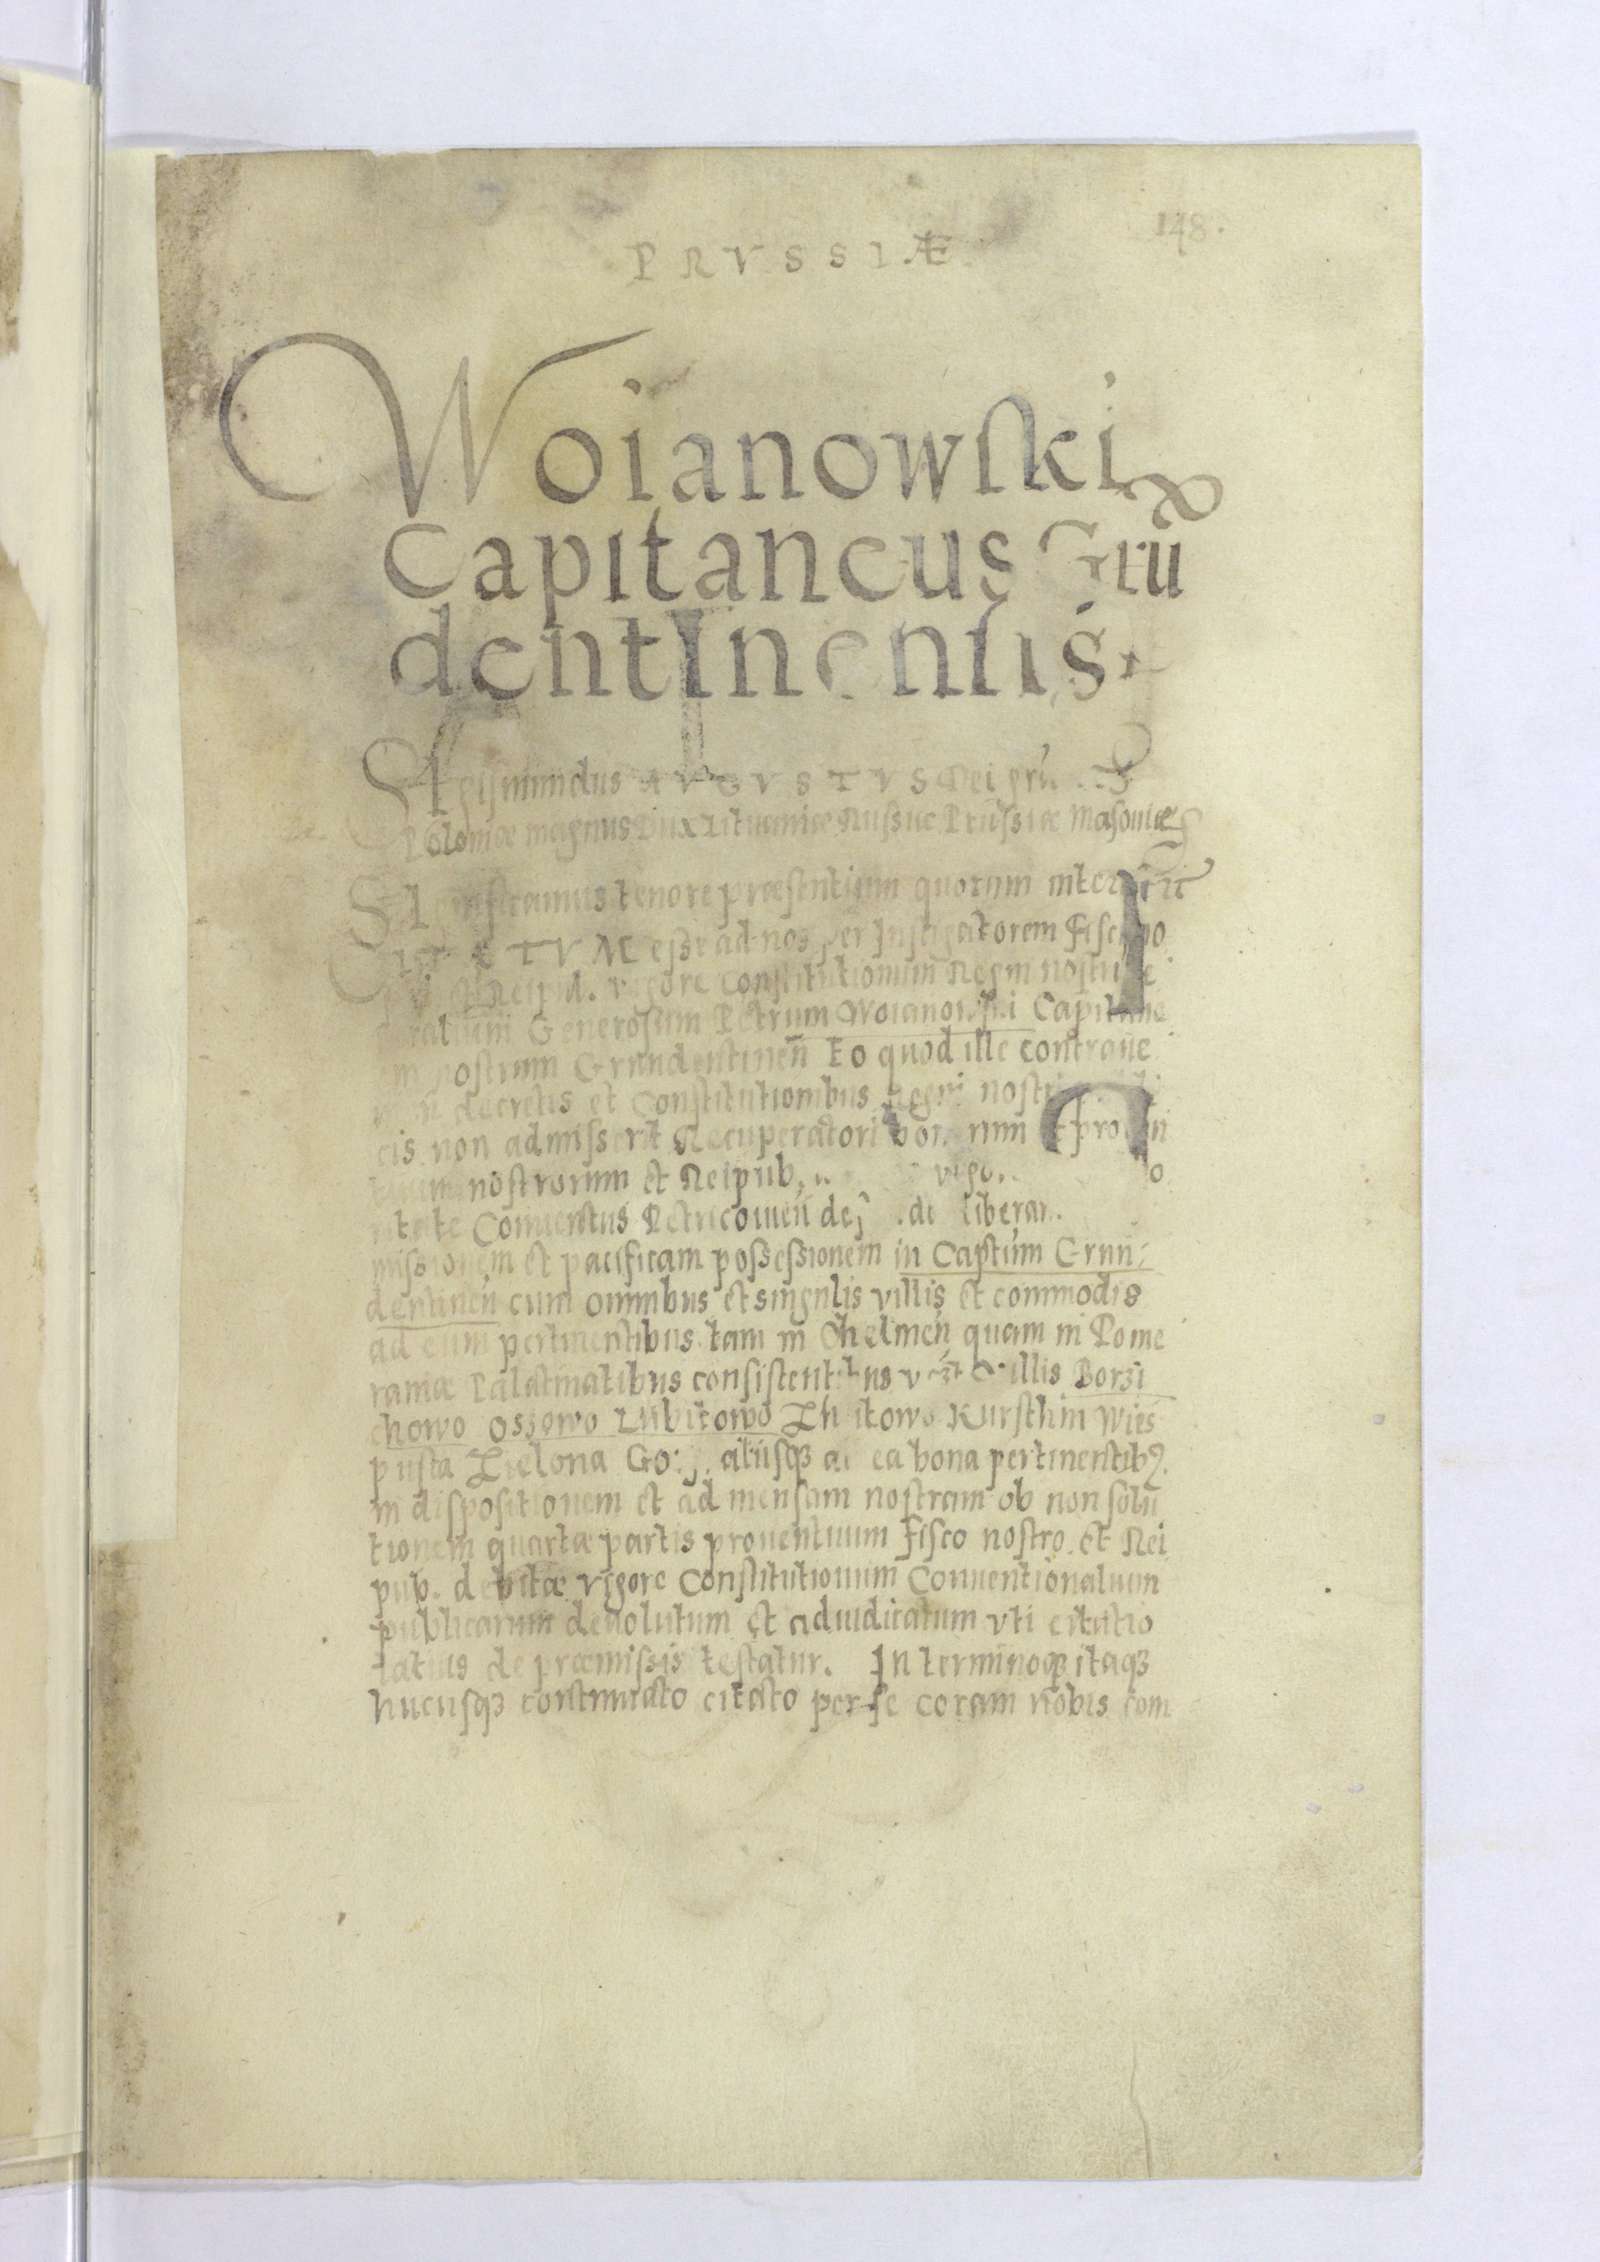 148.
PRVSSIÆ
Woianowski
Capitaneus Grū
dentinensis.
Sigismundus AVGVSTVS Dei grã
Poloniæ magnus Dux Lituaniæ Russiæ Prussiæ Masouiæ
tenore præsentium quorum interest
CITATVM esse ad nos per Instigatorem Fisci
Reipub. vigore Constitutionum Regni nostri
Generosum Petrum Woianowski Capitane
nostrum Grudentineñ Eo quod ille contraue
decretis et Constitutionibus Regni nostri
cis non admisserit Recuperatori bonorum et prouen
tuum nostrorum et Reipub. vigo
Conuentus Petricouień liberam
missionem et pacificam possessionem in Captūm Grun-
dentineñ cum omnibus et singulis villis et commodis
ad eum pertinentibus tam in Chelmeñ quam in Pome
raniæ Palatinatibus consistentibus villis Borzi
chowo Ossowo Lubitowo Kursthin Wies
pusta Zielona aliisq₃ ad ea bona pertinentibꝰ
in dispositionem et ad mensam nostram ob non solu
tionem quartæ partis prouentuum fisco nostro et Rei
pub. debitæ vigore Constitutionum Conuentionalium
publicarum deuolutum et adiudicatum vti citatio
latius de præmissis testatur. In terminoq₃ itaq₃
hucusq₃ continuato citato per se coram nobis com